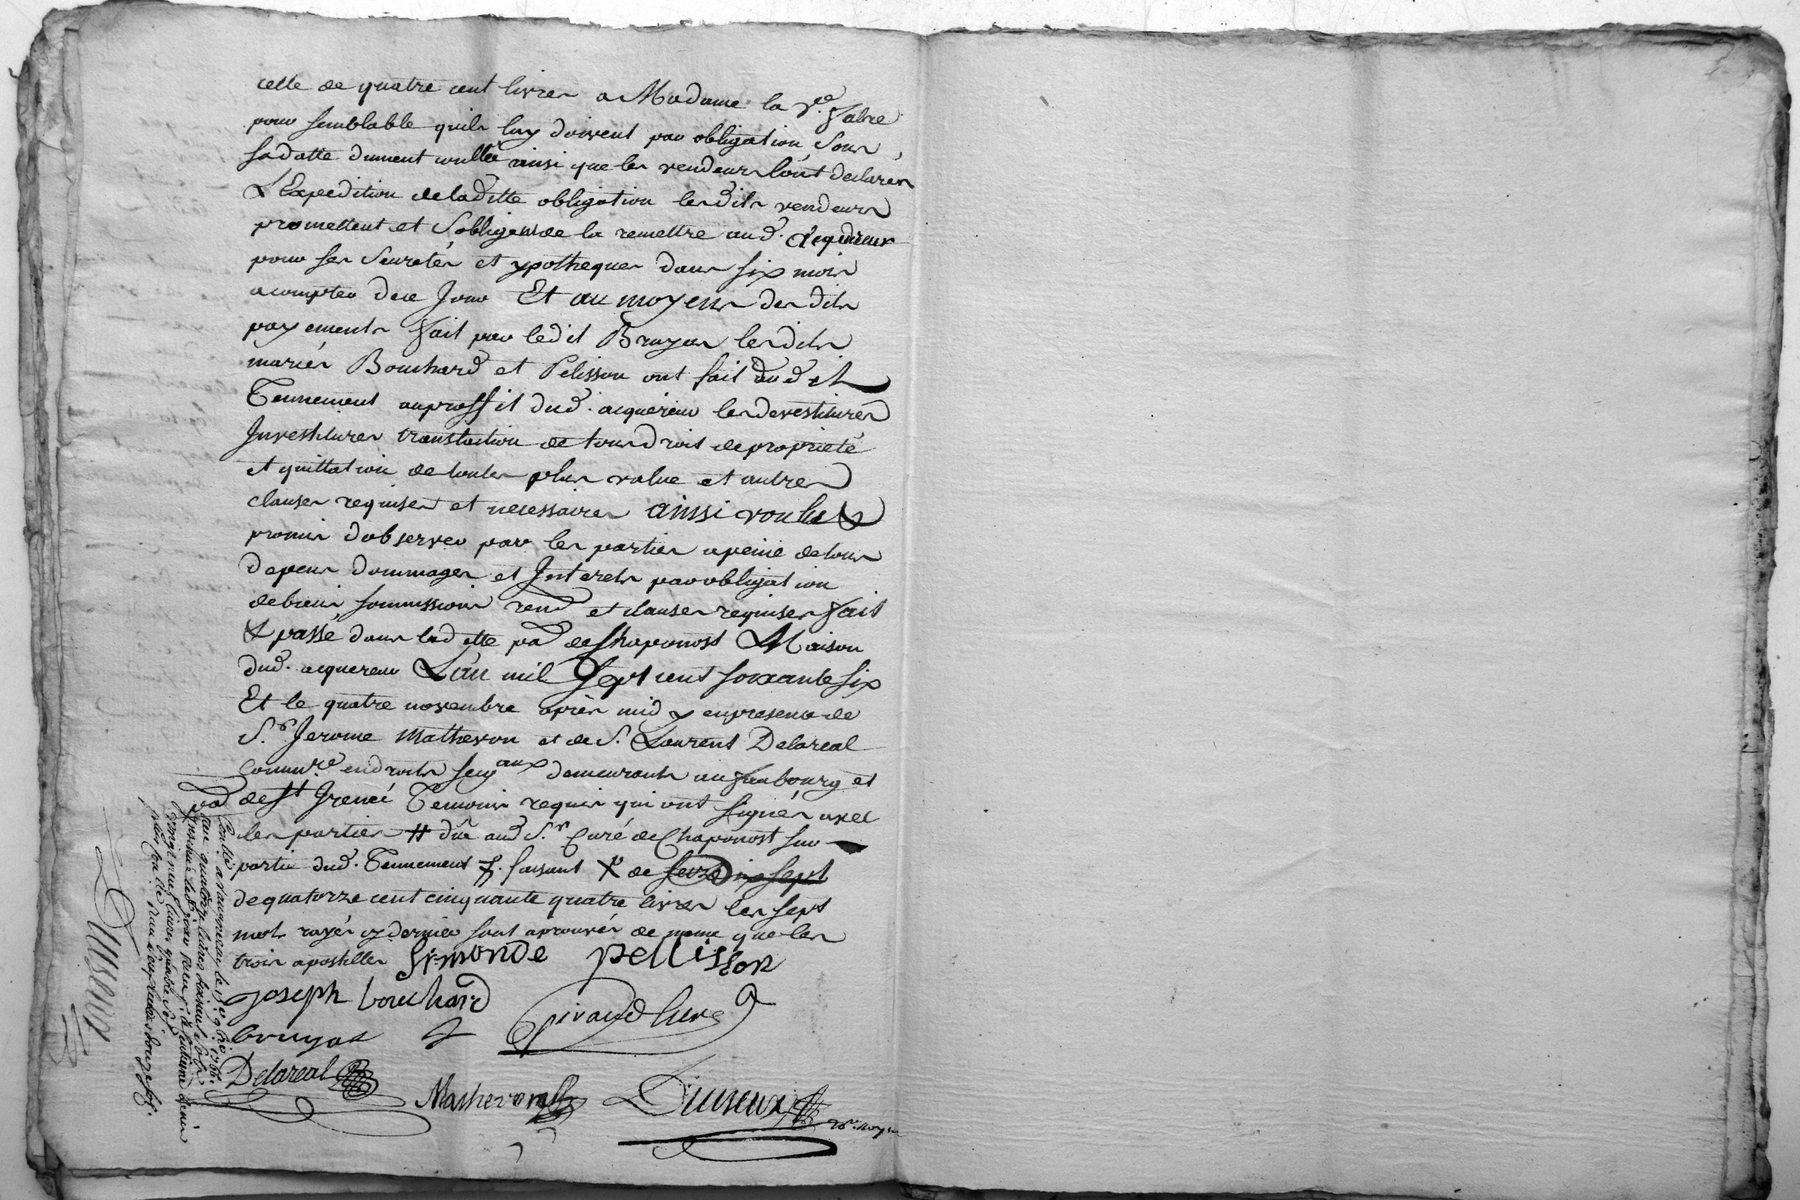 celle de quatre cent livres a Madame la v.e fabre
pour semblable quils luy doivent par obligation sous
sadatte dument conllé ainsi que les vendeurs lont declarés
L'Expedition deladitte obligation lesdits vendeurs
promettent et sobligent de la remettre aud. acquereur
pour ses seuretés et ypotheques dans six mois
acompter dece Jour Et au moyens des dits
payements fait par ledit Bruyas lesdits
mariés Bouchard et Pelisson ont fait dud. et
Tennement auproffit dud. acquéreur les devestitures
Investitures translation de tous droit de proprieté
et quittation de toutes plus value et autres
clauses requises et necessaires ainsi voulu &
promis dobserver par les parties apeine de tous
depens dommages et Interets par obligation
debiens soumissions rend et clauses requises fait
& passé dans laditte pa de Chaponost Maison
dud. acquereur L'an mil sept cent soixante six
Et le quatre novembre après midy enpresence de
S.r Jerome Matheron et de S. Laurent Delareal
commre endroits seigaux demeurants au faubourg et
pad de st Irenée Temoins requis qui ont signés avec
les parties # dûe aud S.r Curé de Chaponost sur
partie dud. Tennement faisant de seize dix sept
de quatorze cent cinquante quatre livres les sept
mots rayés cy dernier sont aprouvés de meme que les
trois apostilles Simonde pellisson
joseph bouchard
bruyas & Giraud Curé
Delareal
Matheron Duseux
Conllé
au quatorze livres
vingt neuf livres quatre sols
Duseux